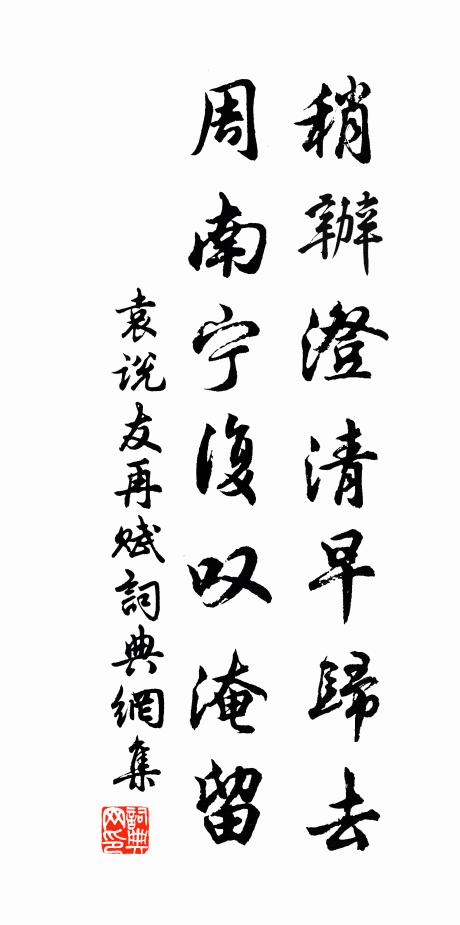 稍辦澄清早歸去
周南宁復叹淹留
袁说友再赋詞典網集
詞典
网印